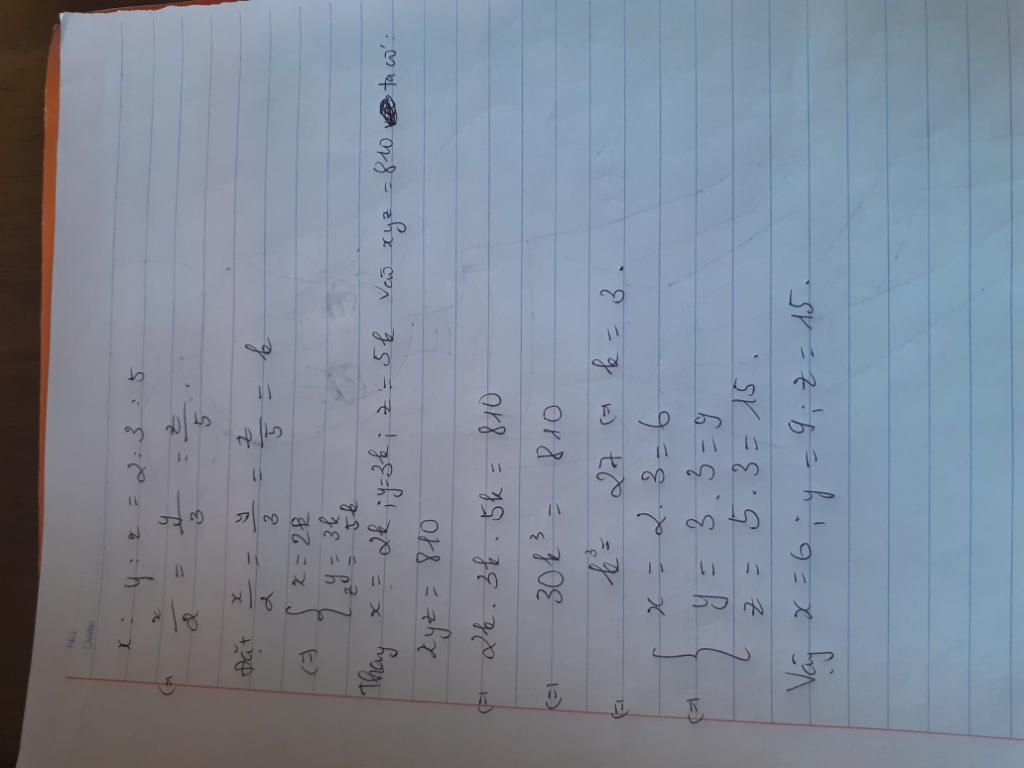 No.
Date
x : y : z = 2 : 3 : 5
(=) x/2 = y/3 = z/5
Đặt x/2 = y/3 = z/5 = k
(=) { x = 2k
y = 3k
z = 5k
Thay x = 2k ; y = 3k ; z = 5k vào xyz = 810 ta có :
xyz = 810
(=) 2k . 3k . 5k = 810
(=) 30k³ = 810
(=) k³ = 27 (=) k = 3 .
(=) { x = 2 . 3 = 6
y = 3 . 3 = 9
z = 5 . 3 = 15 .
Vậy x = 6 ; y = 9 ; z = 15 .